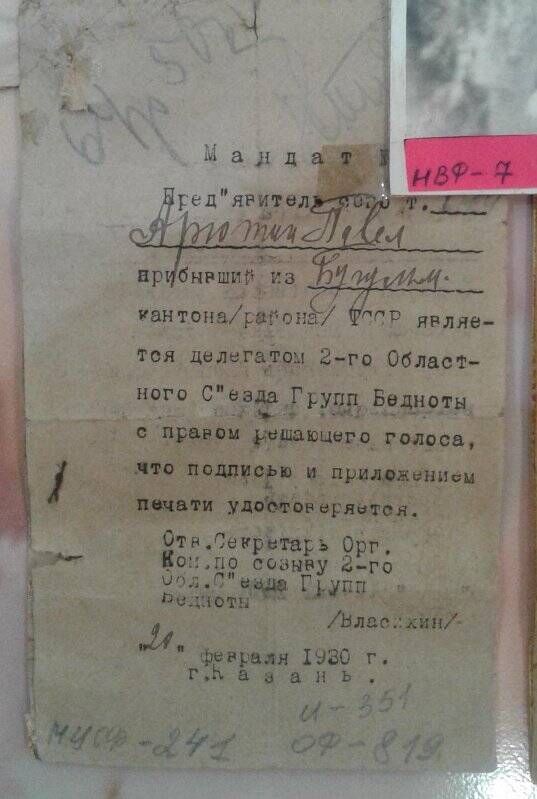 Мандат
НВФ-7
Пред"явитель сего т.
Арютин Павел
прибывший из Бугульм.
кантона/района/ ТССР являе-
тся делегатом 2-го Област-
ного С"езда Групп Бедноты
с правом решающего голоса,
что подписью и приложением
печати удостоверяется.
Отв.Секретарь Орг.
Ком.по созыву 2-го
Обл.С"езда Групп
Бедноты
/Власихин/
"20" февраля 1930 г.
г.Казань.
И-351
ОФ-819